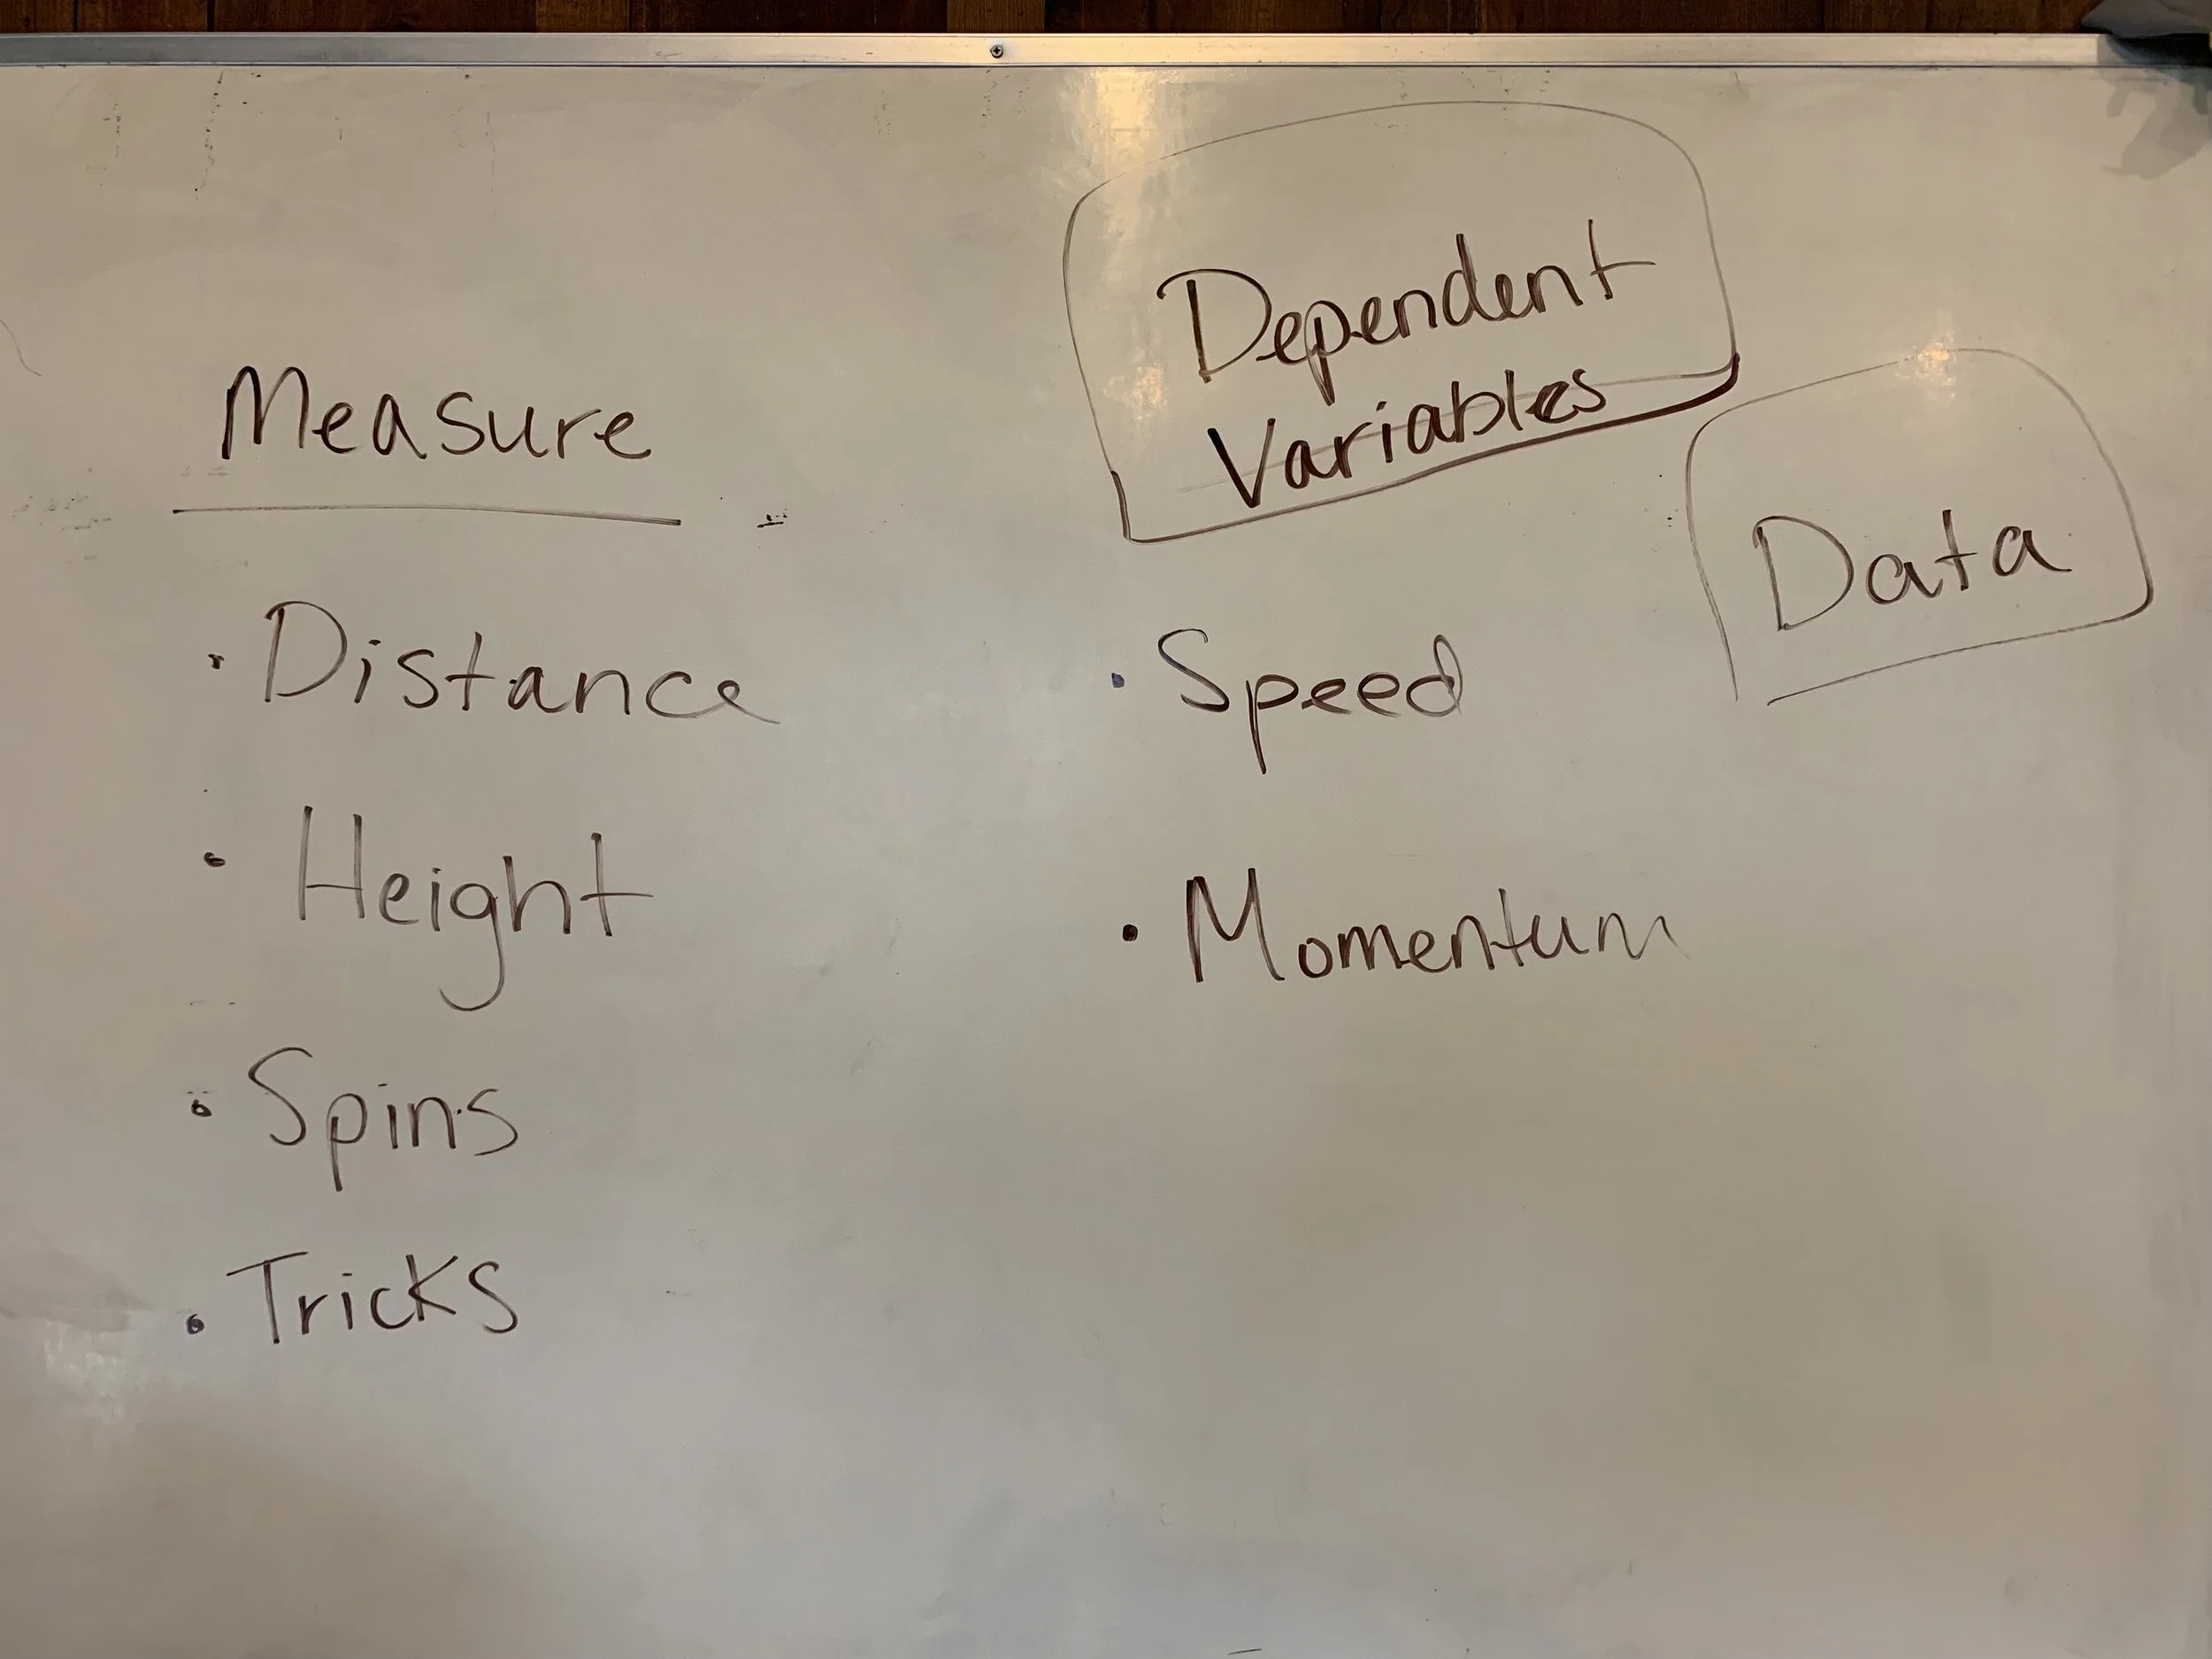 Measure
• Distance
• Height
• Spins
• Tricks
Dependent
Variables
Data
• Speed
• Momentum